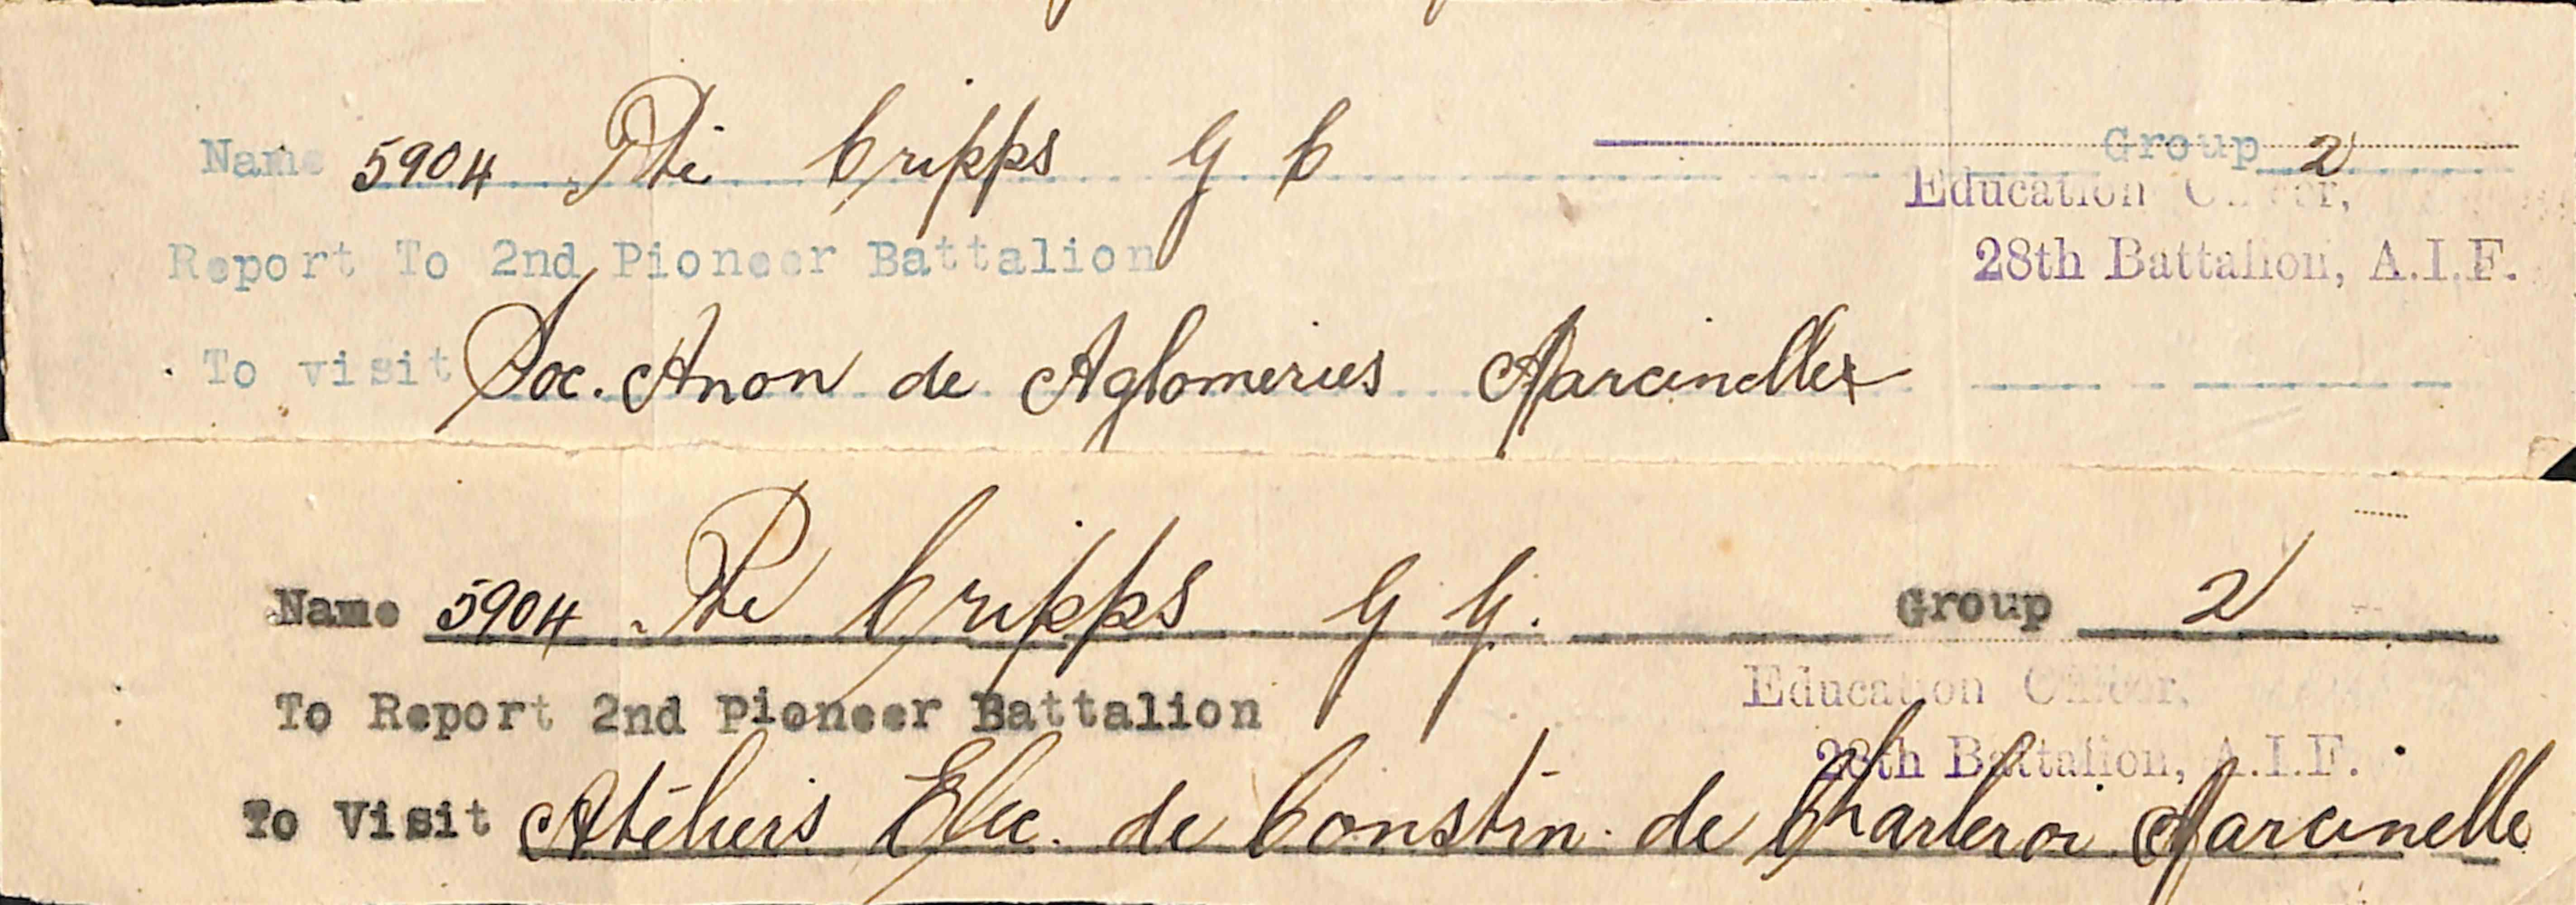 Name 5904 Pte Cripps G C Group 2
Education Officer,
Report To 2nd Pioneer Battalion 28th Battalion, A.I.F.
To visit Soc. Anon de Aglomeries Marcinelles
Name 5904 Pte Cripps G G. Group 2
To Report 2nd Pioneer Battalion Education Officer,
28th Battalion, A.I.F.
To Visit Atéliers Elec. de Constrn. de Charleroi Marcinelle